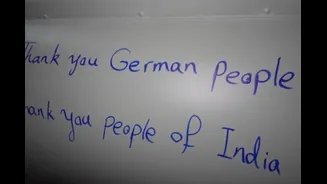 Thank you German People
hank you people of India